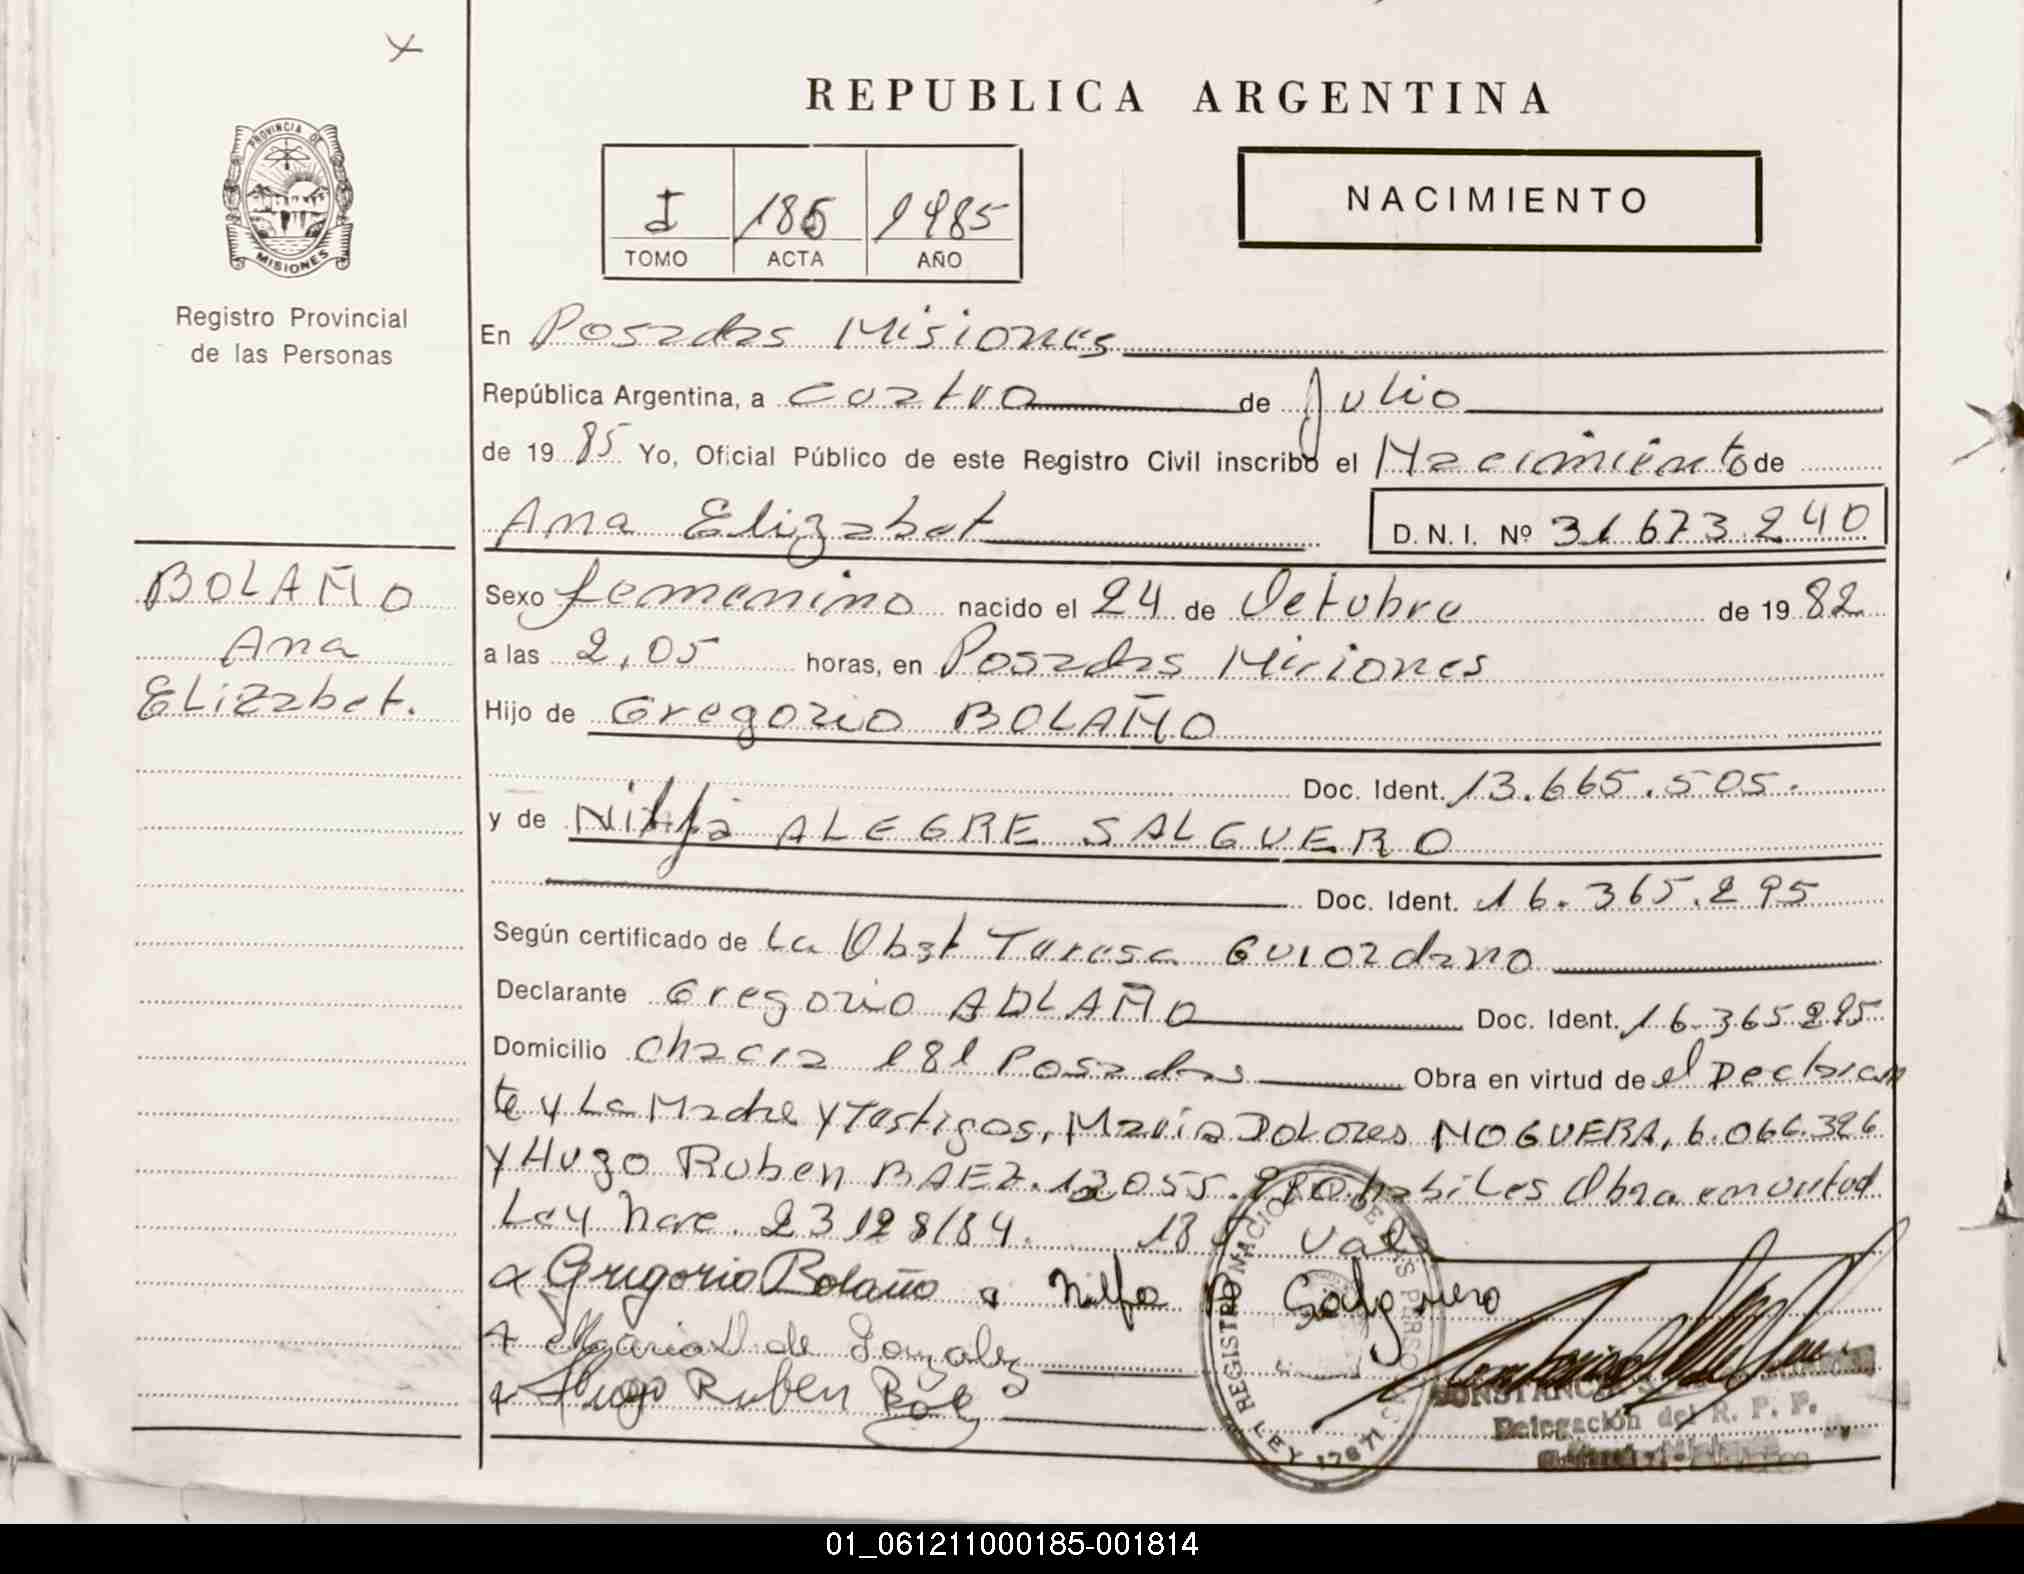 REPUBLICA ARGENTINA
PROVINCIA DE
MISIONES
Registro Provincial
de las Personas
I 186 1985
TOMO ACTA AÑO
NACIMIENTO
En Posadas Misiones
República Argentina, a cuatro de Julio
de 1985 Yo, Oficial Público de este Registro Civil inscribo el Nacimiento de
Ana Elizabet D.N.I. Nº 31 673 240
BOLAÑO
Ana
Elizabet.
Sexo femenino nacido el 24 de Octubre de 1982
a las 2,05 horas, en Posadas Misiones
Hijo de Gregorio BOLAÑO
Doc. Ident. 13.665.505.
y de Nilfa ALEGRE SALGUERO
Doc. Ident. 16.365.295
Según certificado de La Obst Teresa
Declarante Gregorio Doc. Ident. 16.365295
Domicilio Chacra 181 Posadas Obra en virtud de el Declaran
te y La Madre y Testigos, María Dolores NOGUERA, 6.066.326
y Hugo Ruben BAEZ. habiles Obra en virtud
Ley 23128/84. Vale
Gregorio Bolaño Nilfa Salguero
Maria D de Gonzalez
Hugo Ruben
REGISTRO NACIONAL DE LAS PERSONAS
LEY 17671
Delegación del R. P. P.
01_061211000185-001814